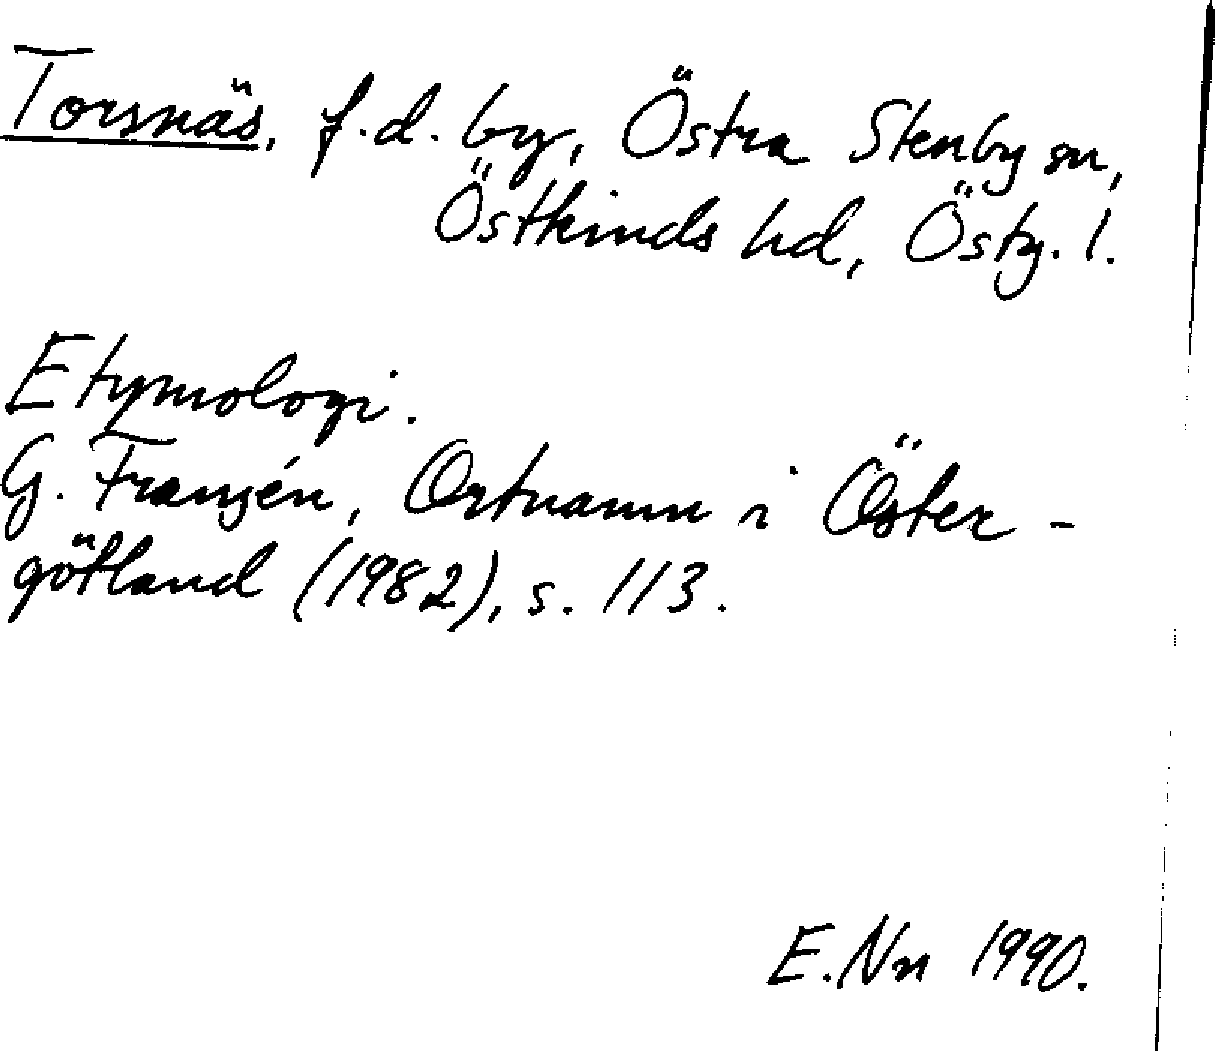 Torsnäs, f.d. by, Östra Stenby sn,
Östkinds hd, Östg. l.
Etymologi.
G. Franzén, Ortnamn i Öster-
götland (1982), s. 113.
E. Nn 1990.